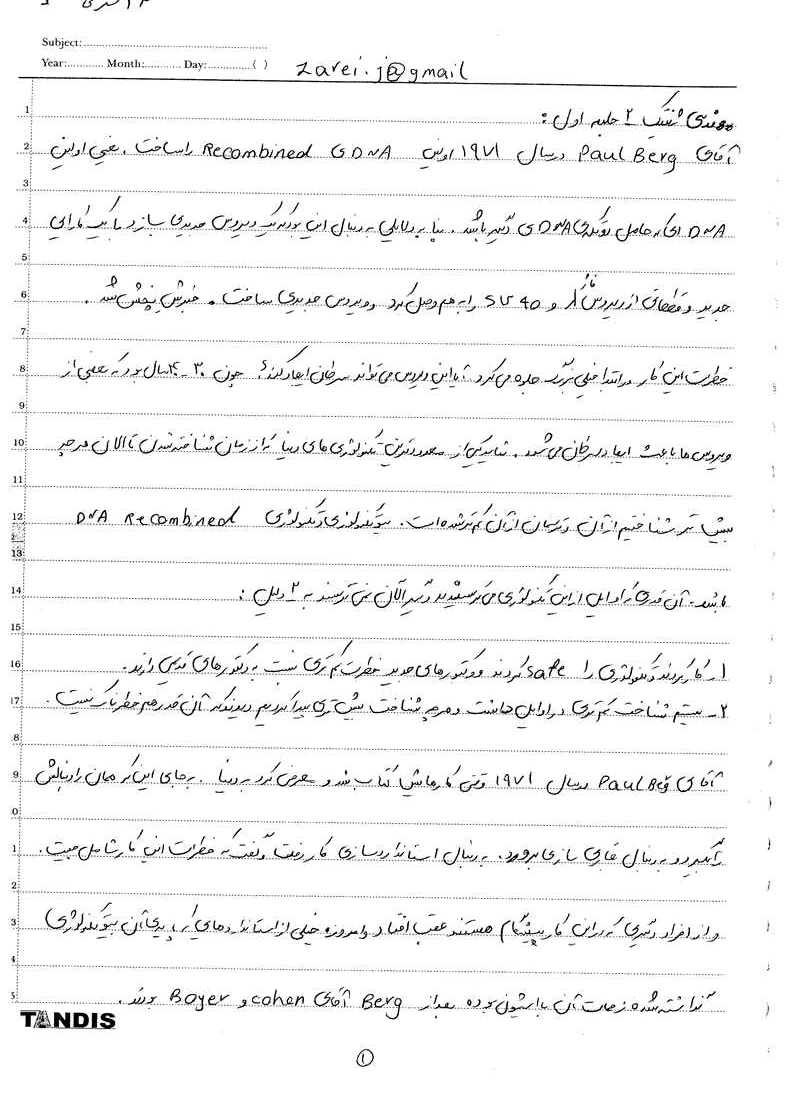 Subject:
Year: Month: Day: ( )
zarei.j@gmail
1 مهندسی ژنتیک ۲ جلسه اول :
2 آقای Paul Berg در سال ۱۹۷۱ اولین DNA ی Recombined را ساخت . یعنی اولین
3
4 DNA ای که حامل توالی DNA ی دیگر باشد . بنا به دلایلی به دنبال این بود که یک ویروس جدیدی بسازد با یک کارایی
5
6 جدید و قطعاتی از ویروس فاژ λ و SV 40 را به هم وصل کرد و ویروس جدیدی ساخت . خبرش پخش شد .
7
8 خطرات این کار در ابتدا خیلی بزرگ جلوه می کرد . آیا این ویروس می تواند سرطان ایجاد کند ؟ چون ۳۰ - ۴۰ سال بود که بعضی از
9
10 ویروس ها باعث ایجاد سرطان می شود . شاید یکی از معدودترین تکنولوژی های دنیا که از زمان شناخته شدن تا الان هر چه
11
12 بیش تر شناختیم از آن ترسمان از آن کم تر شده است . بیوتکنولوژی و تکنولوژی DNA Recombined
13
14 باشد . آن قدری که اوایل از این تکنولوژی می ترسیدند دیگر الان نمی ترسند به ۲ دلیل :
15
16 ۱- کار کردند و تکنولوژی را safe کردند و وکتورهای جدید خطرات کم تری نسبت به وکتورهای قدیمی دارند .
17 ۲- سیستم شناخت کم تری در اوایل داشت و هر چه شناخت بیش تری پیدا کردیم دیدند که آن قدر هم خطرناک نیست .
8
9 آقای Paul Berg در سال ۱۹۷۱ وقتی کارهایش کتاب شد و معرفی کرد به دنیا . به جای این که همان را دنبالش
0
1 را بگیرد و به دنبال تجاری سازی برود . به دنبال استانداردسازی کار رفت و گفت که خطرات این کار شامل چیست .
2
3 و از افراد دیگری که در این کار پیشگام هستند عقب افتاد و امروزه خیلی از استانداردهایی که پایه ی آن بیوتکنولوژی
4
5 گذاشته شده زحمات آن با ایشون بوده بعد از Berg آقای cohen و Boyer بودند .
TANDIS
①